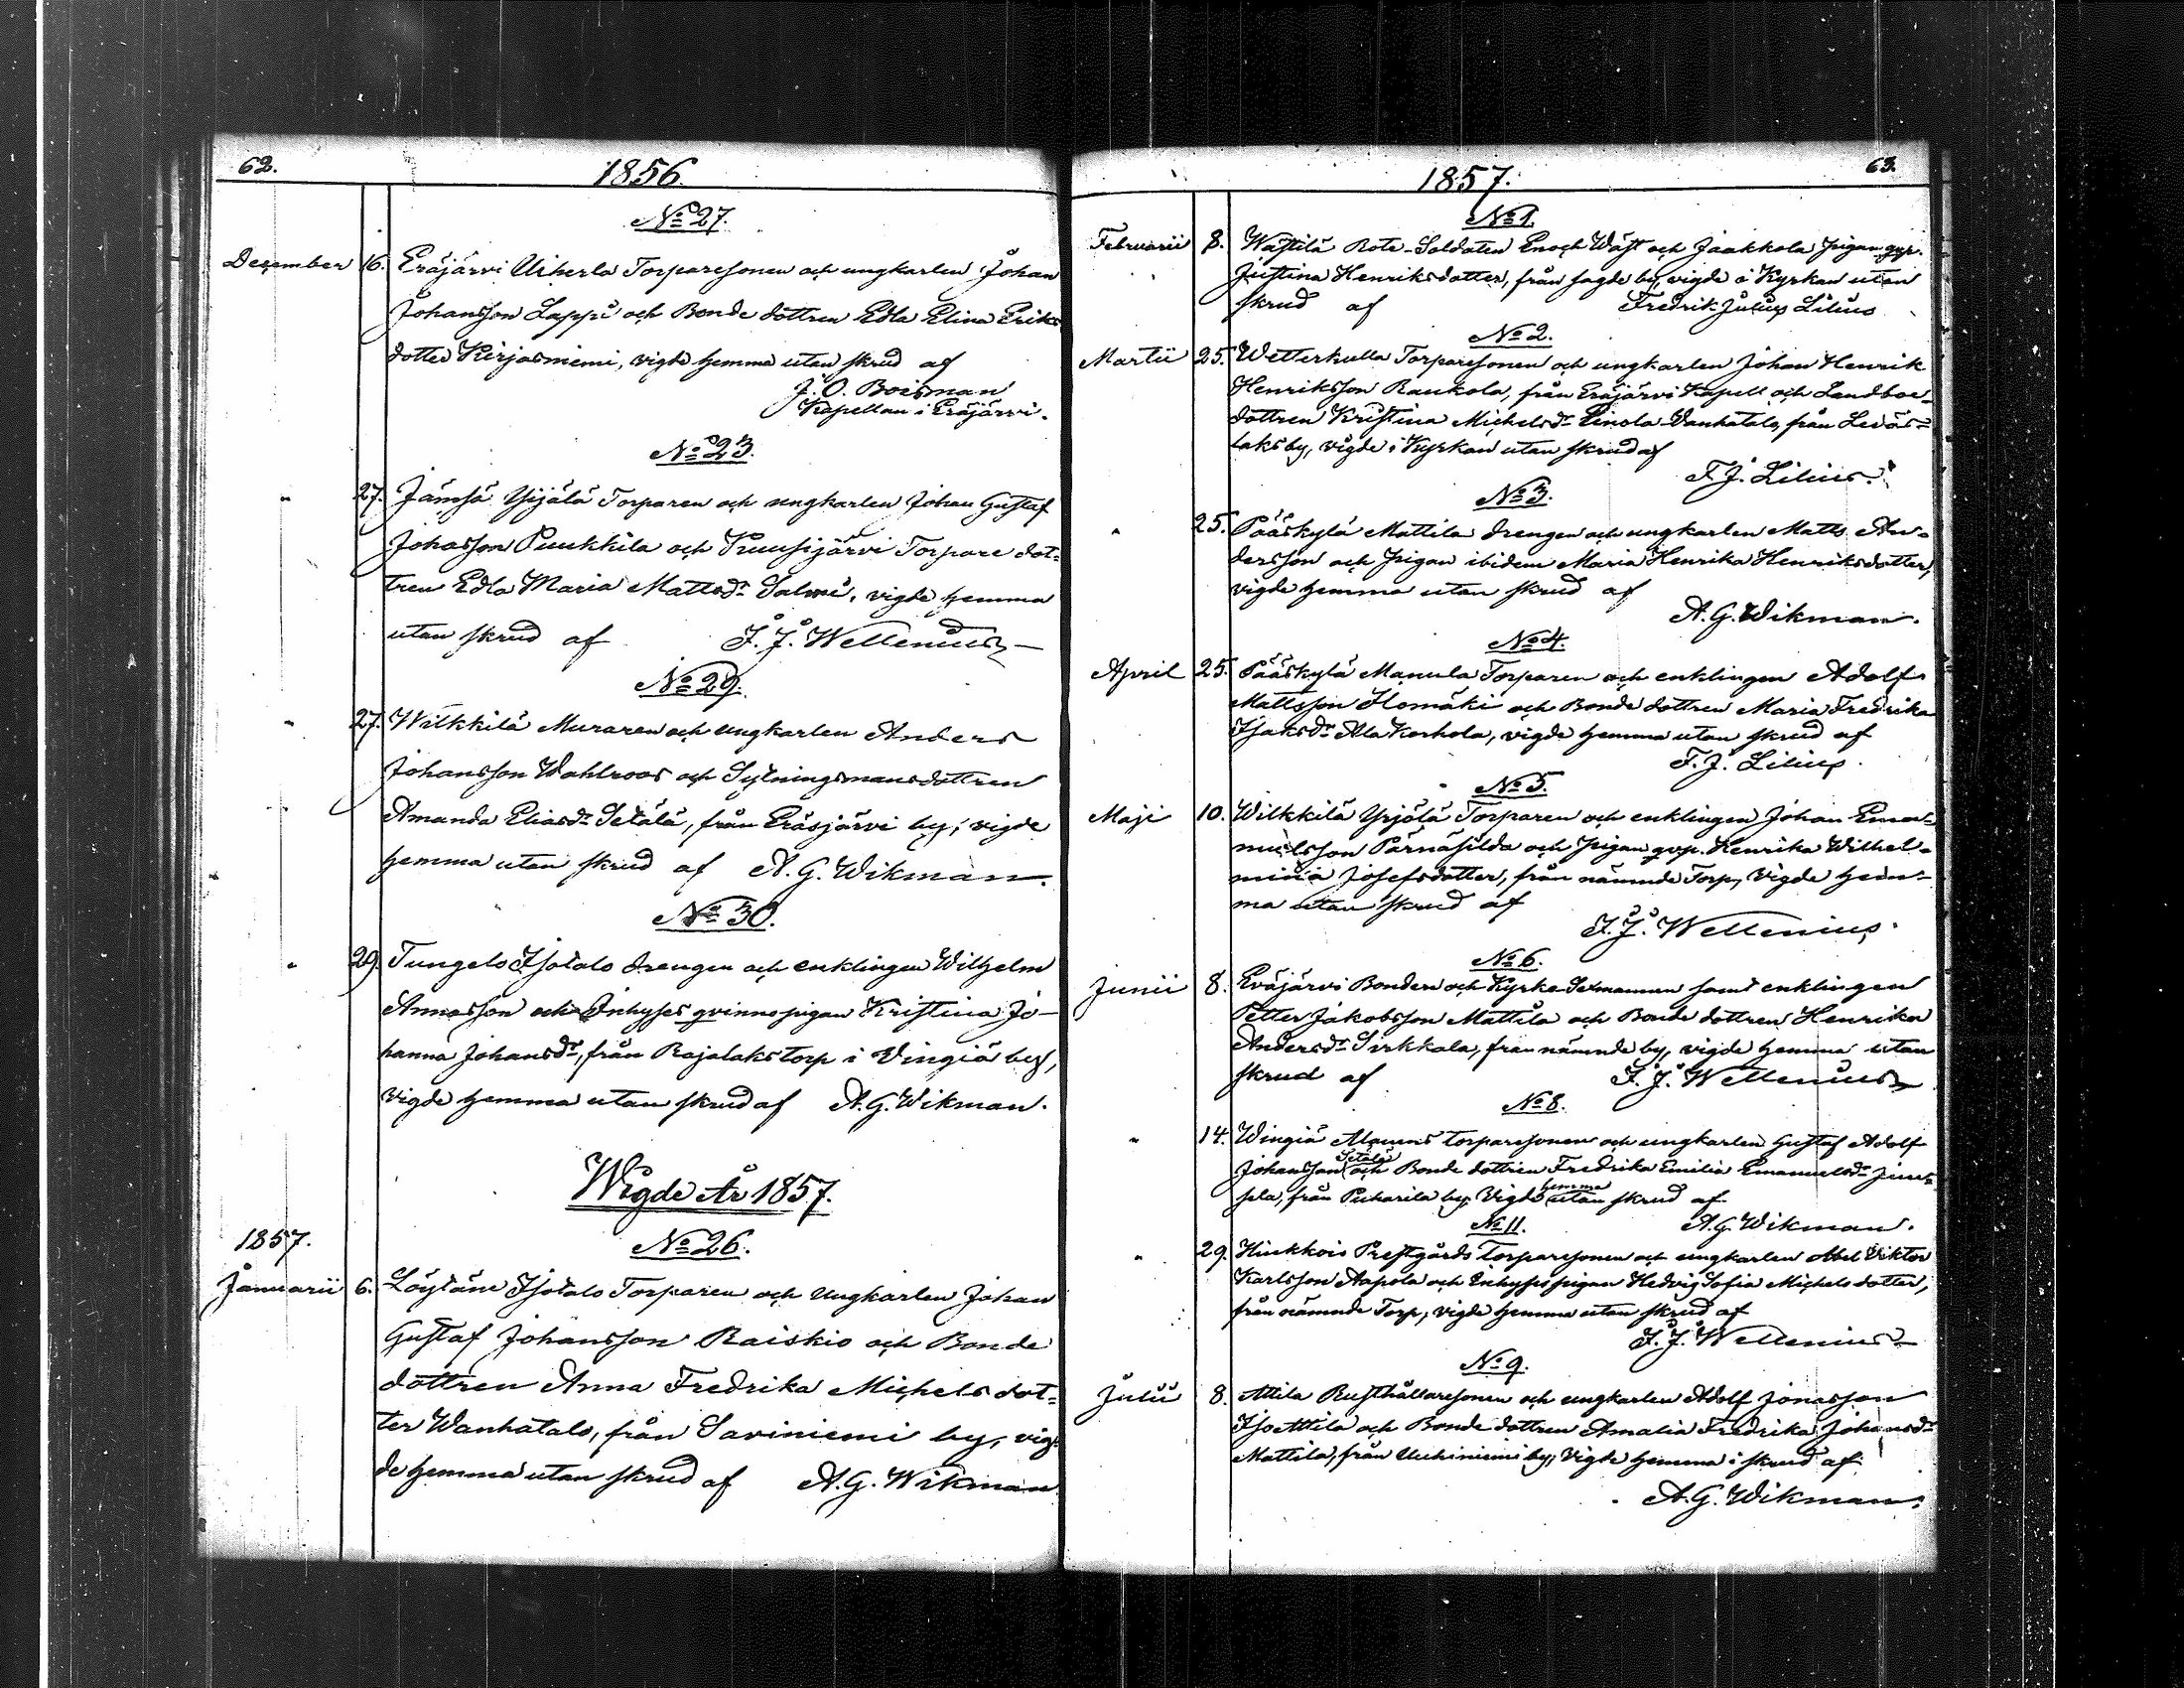 62.
1856.
No 27.
December 16. Eräjärvi Uiherla Torparesonen och ungkarlen Johan
Johansson Lappi och Bonde dottren Edla Elina Eriks
dotter Kirjasniemi, vigde hemma utan skrud af
J. O. Boisman
Kapellan i Eräjärvi.
No 23.
" 27. Jämsä Yijälä Torparen och ungkarlen Johan Gustaf
Johasson Puukkila och Kuusijärvi Torpare dot=
tren Edla Maria Mattsdr Salmi, vigde hemma
utan skrud af J. J. Wellenius
No 29.
" 27. Wilkkilä Muraren och ungkarlen Anders
Johansson Wahlroos och Sytningsmansdottren
Amanda Eliasdr Setälä, från Eräsjärvi by, vigde
hemma utan skrud af A. G. Wikman.
No 30.
" 29. Tungelo Isotalo drengen och enklingen Wilhelm
Annasson och Inhyses qvinnopigan Kristina Jo-
hanna Johansdr, från Rajalaks torp i Vingiä by,
vigde hemma utan skrud af A. G. Wikman.
Wigde År 1857.
1857.
No 26.
Januarii 6. Löytäne Isotalo Torparen och Ungkarlen Johan
Gustaf Johansson Raiskio och Bonde
dottren Anna Fredrika Michels dot=
ter Wanhatalo, från Saviniemi by, vig=
de hemma utan skrud af A. G. Wikman
63.
1857.
No 1.
Februarii 8. Wästilä Rote-Soldaten Enoch Wäst och Jaakkola pigan qvp.
Justina Henriksdotter, från sagde by, vigde i Kyrkan utan
skrud af Fredrik Julius Lilius
No 2.
Martii 25. Wetterkulla Torparesonen och ungkarlen Johan Henrik
Henriksson Raukola, från Eräjärvi Kapell och Landboe-
dottren Kristina Michelsdr Einola Vanhatalo, från Leväs=
laks by, vigde i Kyrkan utan skrud af
F. J. Lilius.
No 3.
" 25. Pääskylä Mattila drengen och ungkarlen Matts An-
dersson och pigan ibidem Maria Henrika Henriksdotter,
vigde hemma utan skrud af
A. G. Wikman.
No 4.
April 25. Pääskylä Manula Torparen och enklingen Adolf
Mattsson Homäki och Bonde dottren Maria Fredrika
Isaksdr Ala Korhola, vigde hemma utan skrud af
F. J. Lilius.
No 5.
Maji 10. Wilkkilä Yrjölä Torparen och enklingen Johan Ema=
nuelsson Pärnäsilda och pigan qvp. Henrika Wilhel-
mina Josefsdotter, från nämnde Torp, vigde hem-
ma utan skrud af
J. J. Wellenius.
No 6.
Junii 8. Eräjärvi Bonden och Kyrko-Sexmannen samt enklingen
Petter Jakobsson Mattila och Bonde dottren Henrika
Andersdr Sirkkala, från nämnde by, vigde hemma utan
skrud af J. J. Wellenius
No 8.
" 14. Wingiä Mauns torparesonen och ungkarlen Gustaf Adolf
Johansson Setälä och Bonde dottren Fredrika Emilia Emanuelsdr
från Puharila by. Vigde hemma utan skrud af
A. G. Wikman.
No 11.
" 29. Hinkkois Prestgårds Torparesonen och ungkarlen Abel Viktor
Karlsson Aapola och Inhysespigan Hedvig Sofia Michels dotter,
från nämnde Torp, vigde hemma utan skrud af
J. J. Wellenius
No 9.
Julii 8. Attila Rusthållaresonen och ungkarlen Adolf Jonasson
Iso Attila och Bonde dottren Amalia Fredrika Johansdr
Mattila, från Uihiniemi by, Vigde hemma i skrud af
A. G. Wikman.